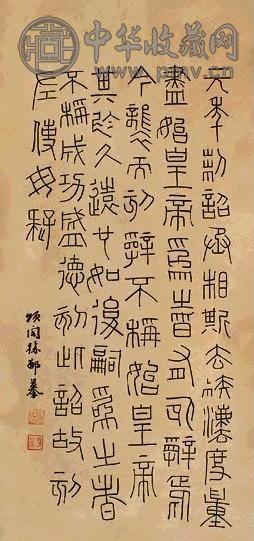 中华收藏网
www.pmv.cn
元年制詔丞相斯去疾灋度量
盡始皇帝爲之皆有刻辭焉
今襲而刻辭不稱始皇帝
其於久遠也如後嗣爲之者
不稱成功盛德刻此詔故刻
左使毋疑
頌閣徐郙摹